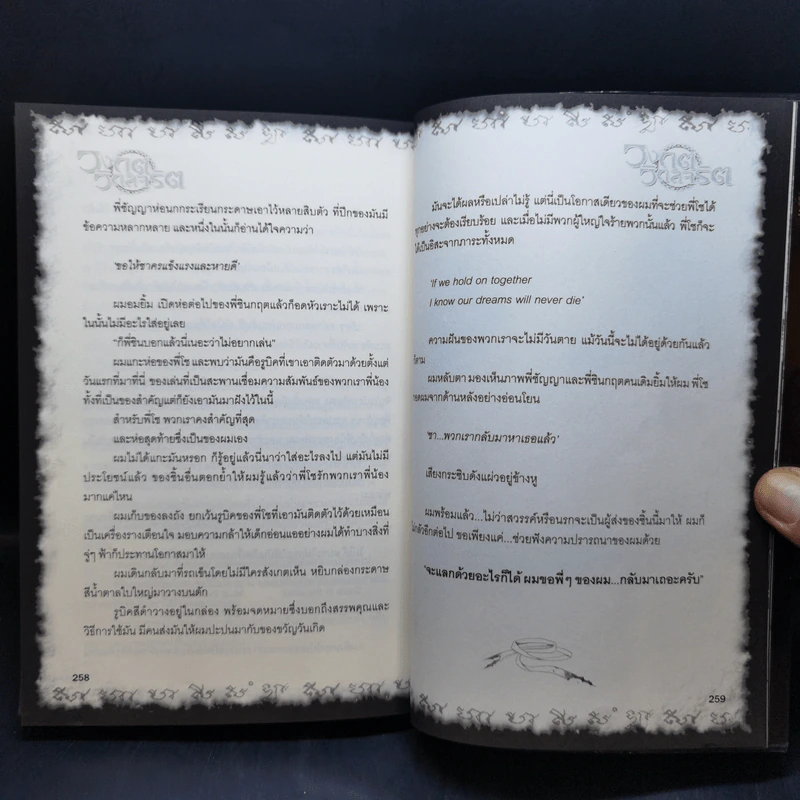 วงกต
วิปลาริต
พี่ชัญญาห่อนกกระเรียนกระดาษเอาไว้หลายสิบตัว ที่ปีกของมันมี
ข้อความหลากหลาย และหนึ่งในนั้นก็อ่านได้ใจความว่า
'ขอให้ชาครแข็งแรงและหายดี'
ผมอมยิ้ม เปิดห่อต่อไปของพี่ชินกฤตแล้วก็อดหัวเราะไม่ได้ เพราะ
ในนั้นไม่มีอะไรใส่อยู่เลย
"ก็พี่ชินบอกแล้วนี่เนอะว่าไม่อยากเล่น"
ผมแกะห่อของพี่โซ และพบว่ามันคือรูบิคที่เขาเอาติดตัวมาด้วยตั้งแต่
วันแรกที่มาที่นี่ ของเล่นที่เป็นสะพานเชื่อมความสัมพันธ์ของพวกเราพี่น้อง
ทั้งที่เป็นของสำคัญแต่ก็ยังเอามันมาฝังไว้ในนี้
สำหรับพี่โซ พวกเราคงสำคัญที่สุด
และห่อสุดท้ายซึ่งเป็นของผมเอง
ผมไม่ได้แกะมันหรอก ก็รู้อยู่แล้วนี่นาว่าใส่อะไรลงไป แต่มันไม่มี
ประโยชน์แล้ว ของชิ้นอื่นตอกย้ำให้ผมรู้แล้วว่าพี่โซรักพวกเราพี่น้อง
มากแค่ไหน
ผมเก็บของลงถัง ยกเว้นรูบิคของพี่โซที่เอามันติดตัวไว้ด้วยเหมือน
เป็นเครื่องรางเตือนใจ มอบความกล้าให้เด็กอ่อนแออย่างผมได้ทำบางสิ่งที่
จู่ๆ ฟ้าก็ประทานโอกาสมาให้
ผมเดินกลับมาที่รถเข็นโดยไม่มีใครสังเกตเห็น หยิบกล่องกระดาษ
สีน้ำตาลใบใหญ่มาวางบนตัก
รูบิคสีดำวางอยู่ในกล่อง พร้อมจดหมายซึ่งบอกถึงสรรพคุณและ
วิธีการใช้มัน มีคนส่งมันให้ผมปะปนมากับของขวัญวันเกิด
258
วงกต
วิปลาริต
มันจะได้ผลหรือเปล่าไม่รู้ แต่นี่เป็นโอกาสเดียวของผมที่จะช่วยพี่โซได้
ทุกอย่างจะต้องเรียบร้อย และเมื่อไม่มีพวกผู้ใหญ่ใจร้ายพวกนั้นแล้ว พี่โซก็จะ
ได้เป็นอิสะจากภาระทั้งหมด
'If we hold on together
I know our dreams will never die'
ความฝันของพวกเราจะไม่มีวันตาย แม้วันนี้จะไม่ได้อยู่ด้วยกันแล้ว
ก็ตาม
ผมหลับตา มองเห็นภาพพี่ชัญญาและพี่ชินกฤตคนเดิมยิ้มให้ผม พี่โซ
กอดผมจากด้านหลังอย่างอ่อนโยน
'ชา...พวกเรากลับมาหาเธอแล้ว'
เสียงกระซิบดังแผ่วอยู่ข้างหู
ผมพร้อมแล้ว...ไม่ว่าสวรรค์หรือนรกจะเป็นผู้ส่งของชิ้นนี้มาให้ ผมก็
ไม่กลัวอีกต่อไป ขอเพียงแค่...ช่วยฟังความปรารถนาของผมด้วย
"จะแลกด้วยอะไรก็ได้ ผมขอพี่ๆ ของผม...กลับมาเถอะครับ"
259